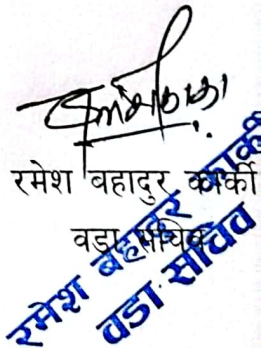 रमेश बहादुर कार्की
वडा सचिव
रमेश बहादुर कार्की
वडा सचिव